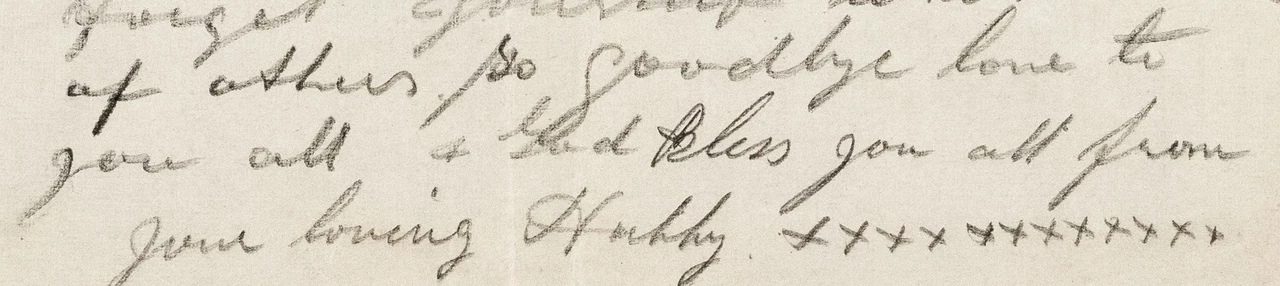 forget yourself
of others. So goodbye love to
you all + God Bless you all from
your loving Hubby. xxxx xxxxxxxxx